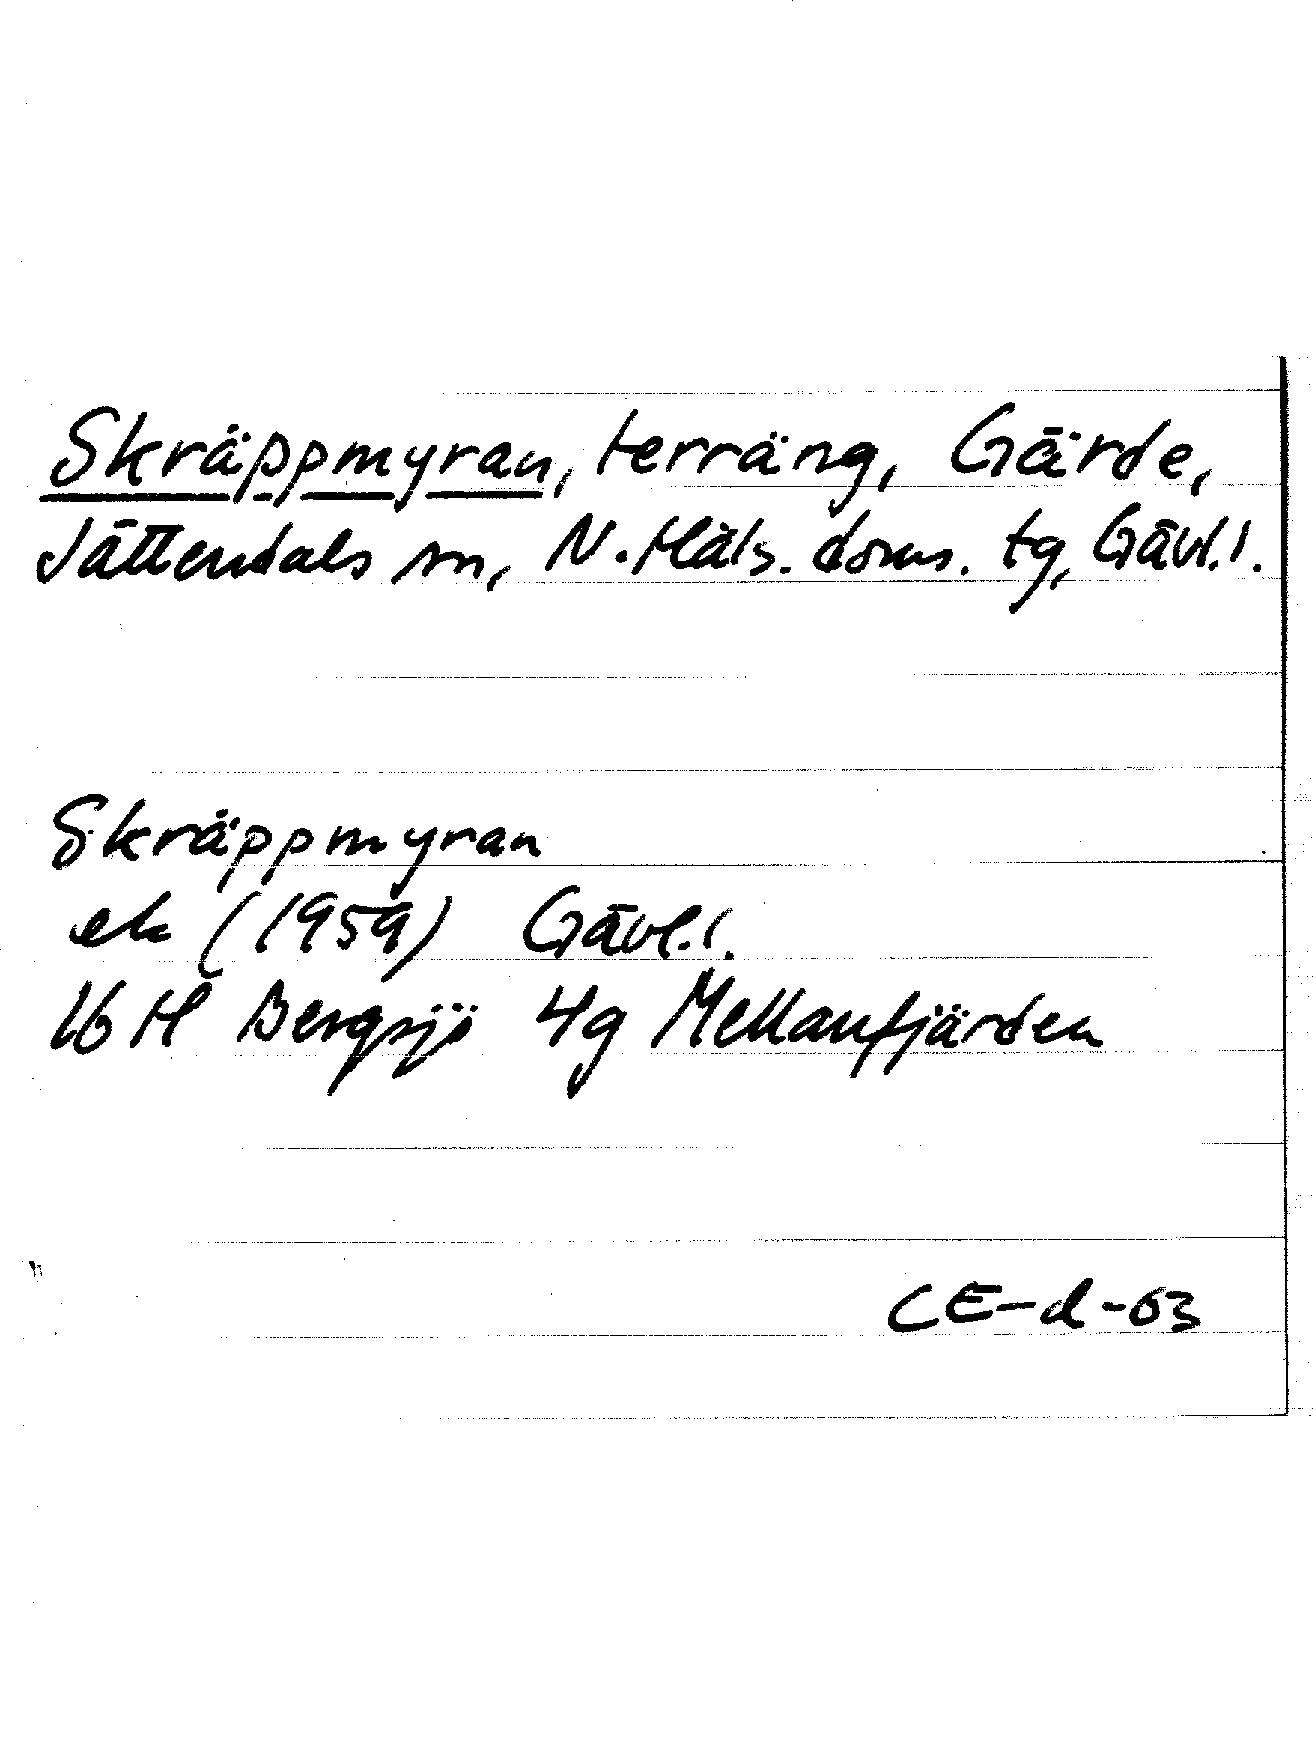 Skräppmyran, terräng, Gärde,
Jättendals sn, N. Häls. doms. tg, Gävl. l.
Skräppmyran
ek (1959) Gävl. l.
16 H Bergsjö 4g Mellanfjärden
CE-d-63